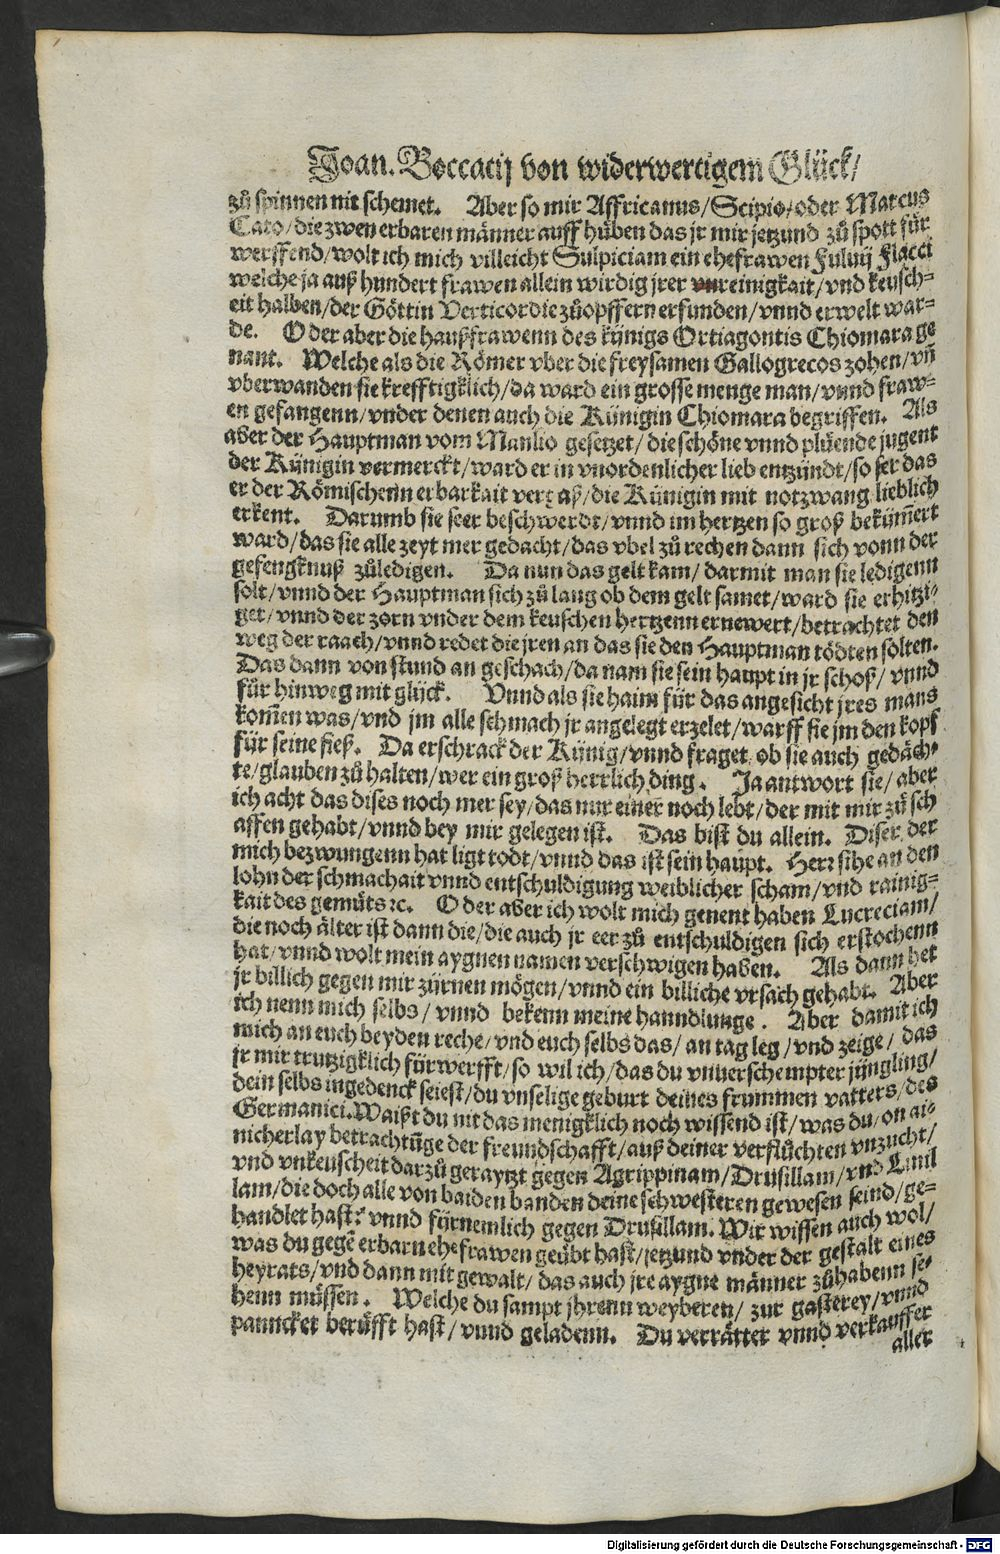 Joan. Boccatij von widerwertigem Glück/
zů spinnen nit schemet. Aber so mir Affricanus/Scipio/oder Marcus
Cato/die zwen erbaren männer auff hůben das jr mir jetzund zů spott für
werffend/wolt ich mich villeicht Sulpiciam ein ehefrawen Fuluij Flacci
welche ja auß hundert frawen allein wirdig jrer vnreinigkait/vnd keusch-
eit halben/der Göttin Verticordie zůopffern erfunden/vnnd erwelt war-
de. Oder aber die haußfrawenn des kýnigs Ortiagontis Chiomara ge
nant. Welche als die Römer vber die freysamen Gallogrecos zohen/vñ
vberwanden sie krefftigklich/da ward ein grosse menge man/vnnd fraw-
en gefangenn/vnder denen auch die Künigin Chiomara begriffen. Als
aber der Hauptman vom Manlio gesetzet/die schöne vnnd plüende jugent
der Künigin vermerckt/ward er in vnordenlicher lieb entzündt/so fer das
er der Römischenn erbarkait vergaß/die Künigin mit notzwang lieblich
erkent. Darumb sie seer beschwerdt/vnnd im hertzen so groß beküm̃ert
ward/das sie alle zeyt mer gedacht/das vbel zů rechen dann sich vonn der
gefengknuß zůledigen. Da nun das gelt kam/darmit man sie ledigenn
solt/vnnd der Hauptman sich zů lang ob dem gelt samet/ward sie erhitzi-
get/vnnd der zorn vnder dem keuschen hertzenn ernewert/betrachtet den
weg der raach/vnnd redet die jren an das sie den Hauptman tödten solten.
Das dann von stund an geschach/da nam sie sein haupt in jr schoß/vnnd
für hinweg mit glück. Vnnd als sie haim für das angesicht jres mans
kom̃en was/vnd jm alle schmach jr angelegt erzelet/warff sie jm den kopf
für seine fieß. Da erschrack der Künig/vnnd fraget ob sie auch gedäch-
te/glauben zů halten/wer ein groß herrlich ding. Ja antwort sie/aber
ich acht das dises noch mer sey/das nur einer noch lebt/der mit mir zů sch
affen gehabt/vnnd bey mir gelegen ist. Das bist du allein. Diser der
mich bezwungenn hat ligt todt/vnnd das ist sein haupt. Herr sihe an den
lohn der schmachait vnnd entschuldigung weiblicher scham/vnd rainig-
kait des gemüts ꝛc. Oder aber ich wolt mich genent haben Lucreciam/
die noch älter ist dann die/die auch jr eer zů entschuldigen sich erstochenn
hat/vnnd wolt mein aygnen namen verschwigen haben. Als dann het
jr billich gegen mir zürnen mögen/vnnd ein billiche vrsach gehabt. Aber
ich nenn mich selbs/vnnd bekenn meine hanndlunge. Aber damit ich
mich an euch beyden reche/vnd euch selbs das/an tag leg/vnd zeige/das
jr mir trutzigklich fürwerfft/so wil ich/das du vnuerschempter jüngling/
dein selbs ingedenck seiest/du vnselige geburt deines frummen vatters/des
Germanici. Waißt du nit das menigklich noch wissend ist/was du/on ai-
nicherlay betrachtũge der freundschafft/auß deiner verflůchten vnzucht/
vnd vnkeuscheit darzů geraytzt gegen Agrippinam/Drusillam/vnd Liuil
lam/die doch alle von baiden banden deine schwesteren gewesen seind/ge-
handlet hast? vnnd fürnemlich gegen Drusillam. Wir wissen auch wol/
was du gegẽ erbarn ehefrawen geübt hast/jetzund vnder der gestalt eines
heyrats/vnd dann mit gewalt/das auch jre aygne männer zůhabenn se-
henn müssen. Welche du sampt jhrenn weyberen/zur gasterey/vnnd
pannicket berůfft hast/vnnd geladenn. Du verrätter vnnd verkauffer
aller
Digitalisierung gefördert durch die Deutsche Forschungsgemeinschaft - DFG